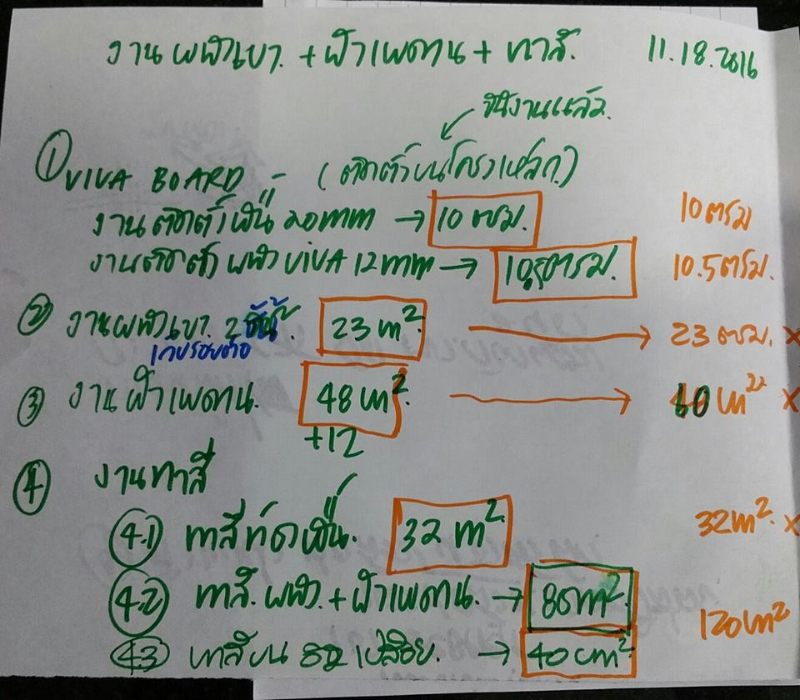 งานผนังเบา + ฝ้าเพดาน + ทาสี 11.18.2016
มีงานแล้ว.
① VIVA BOARD - (ติดตั้งบนโครงเหล็ก)
งานติดตั้งพื้น 20mm → 10 ตรม. 10 ตรม
งานติดตั้งผนัง VIVA 12mm → 10.5 ตรม. 10.5 ตรม.
② งานผนังเบา 2 ชั้น 23 m². → 23 ตรม. x
เก็บรอยต่อ
③ งานฝ้าเพดาน. 48 m². → 60 m² x
+12
④ งานทาสี
4.1 ทาสีห้องพื้น. 32 m². 32 m². x
4.2 ทาสี.ผนัง.+ฝ้าเพดาน. → 80 m². 120 m²
4.3 ทาสีบน เปลือย. → 40 m².